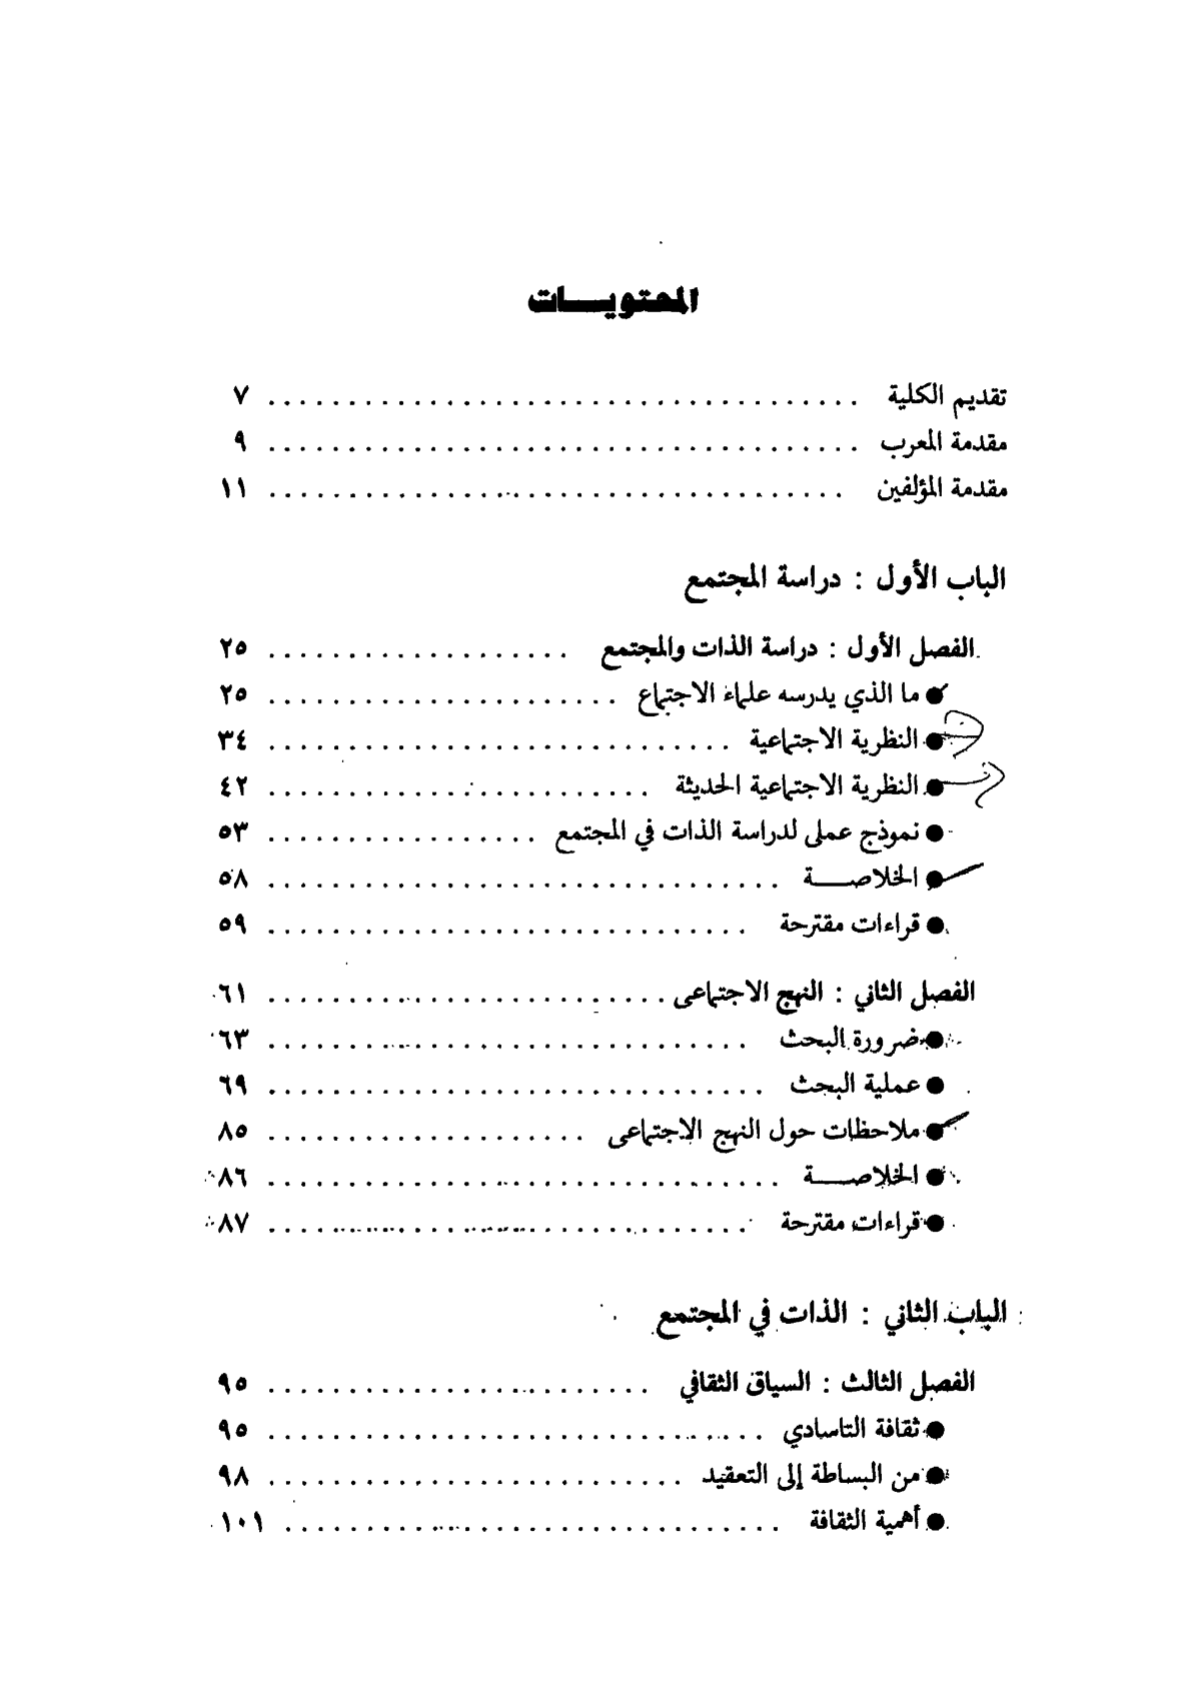 المحتويـــات
تقديم الكلية . . . . . . . . . . . . . . . . . . . . . . . . . . . . . . . . . . . . . ٧
مقدمة المعرب . . . . . . . . . . . . . . . . . . . . . . . . . . . . . . . . . . . . . ٩
مقدمة المؤلفين . . . . . . . . . . . . . . . . . . . . . . . . . . . . . . . . . . . . ١١
الباب الأول : دراسة المجتمع
الفصل الأول : دراسة الذات والمجتمع . . . . . . . . . . . . . . . . . . . ٢٥
● ما الذي يدرسه علماء الاجتماع . . . . . . . . . . . . . . . . . . . . . . ٢٥
● النظرية الاجتماعية . . . . . . . . . . . . . . . . . . . . . . . . . . . . . ٣٤
● النظرية الاجتماعية الحديثة . . . . . . . . . . . . . . . . . . . . . . . . ٤٢
● نموذج عملى لدراسة الذات في المجتمع . . . . . . . . . . . . . . . . . ٥٣
● الخلاصـــة . . . . . . . . . . . . . . . . . . . . . . . . . . . . . . . . ٥٨
● قراءات مقترحة . . . . . . . . . . . . . . . . . . . . . . . . . . . . . . ٥٩
الفصل الثاني : النهج الاجتماعى . . . . . . . . . . . . . . . . . . . . . . . . . ٦١
● ضرورة البحث . . . . . . . . . . . . . . . . . . . . . . . . . . . . . . ٦٣
● عملية البحث . . . . . . . . . . . . . . . . . . . . . . . . . . . . . . . ٦٩
● ملاحظات حول النهج الاجتماعى . . . . . . . . . . . . . . . . . . . . ٨٥
● الخلاصـــة . . . . . . . . . . . . . . . . . . . . . . . . . . . . . . . . ٨٦
● قراءات مقترحة . . . . . . . . . . . . . . . . . . . . . . . . . . . . . . ٨٧
الباب الثاني : الذات في المجتمع
الفصل الثالث : السياق الثقافي . . . . . . . . . . . . . . . . . . . . . . . . ٩٥
● ثقافة التاسادي . . . . . . . . . . . . . . . . . . . . . . . . . . . . . . . ٩٥
● من البساطة إلى التعقيد . . . . . . . . . . . . . . . . . . . . . . . . . . ٩٨
● أهمية الثقافة . . . . . . . . . . . . . . . . . . . . . . . . . . . . . . . ١٠١